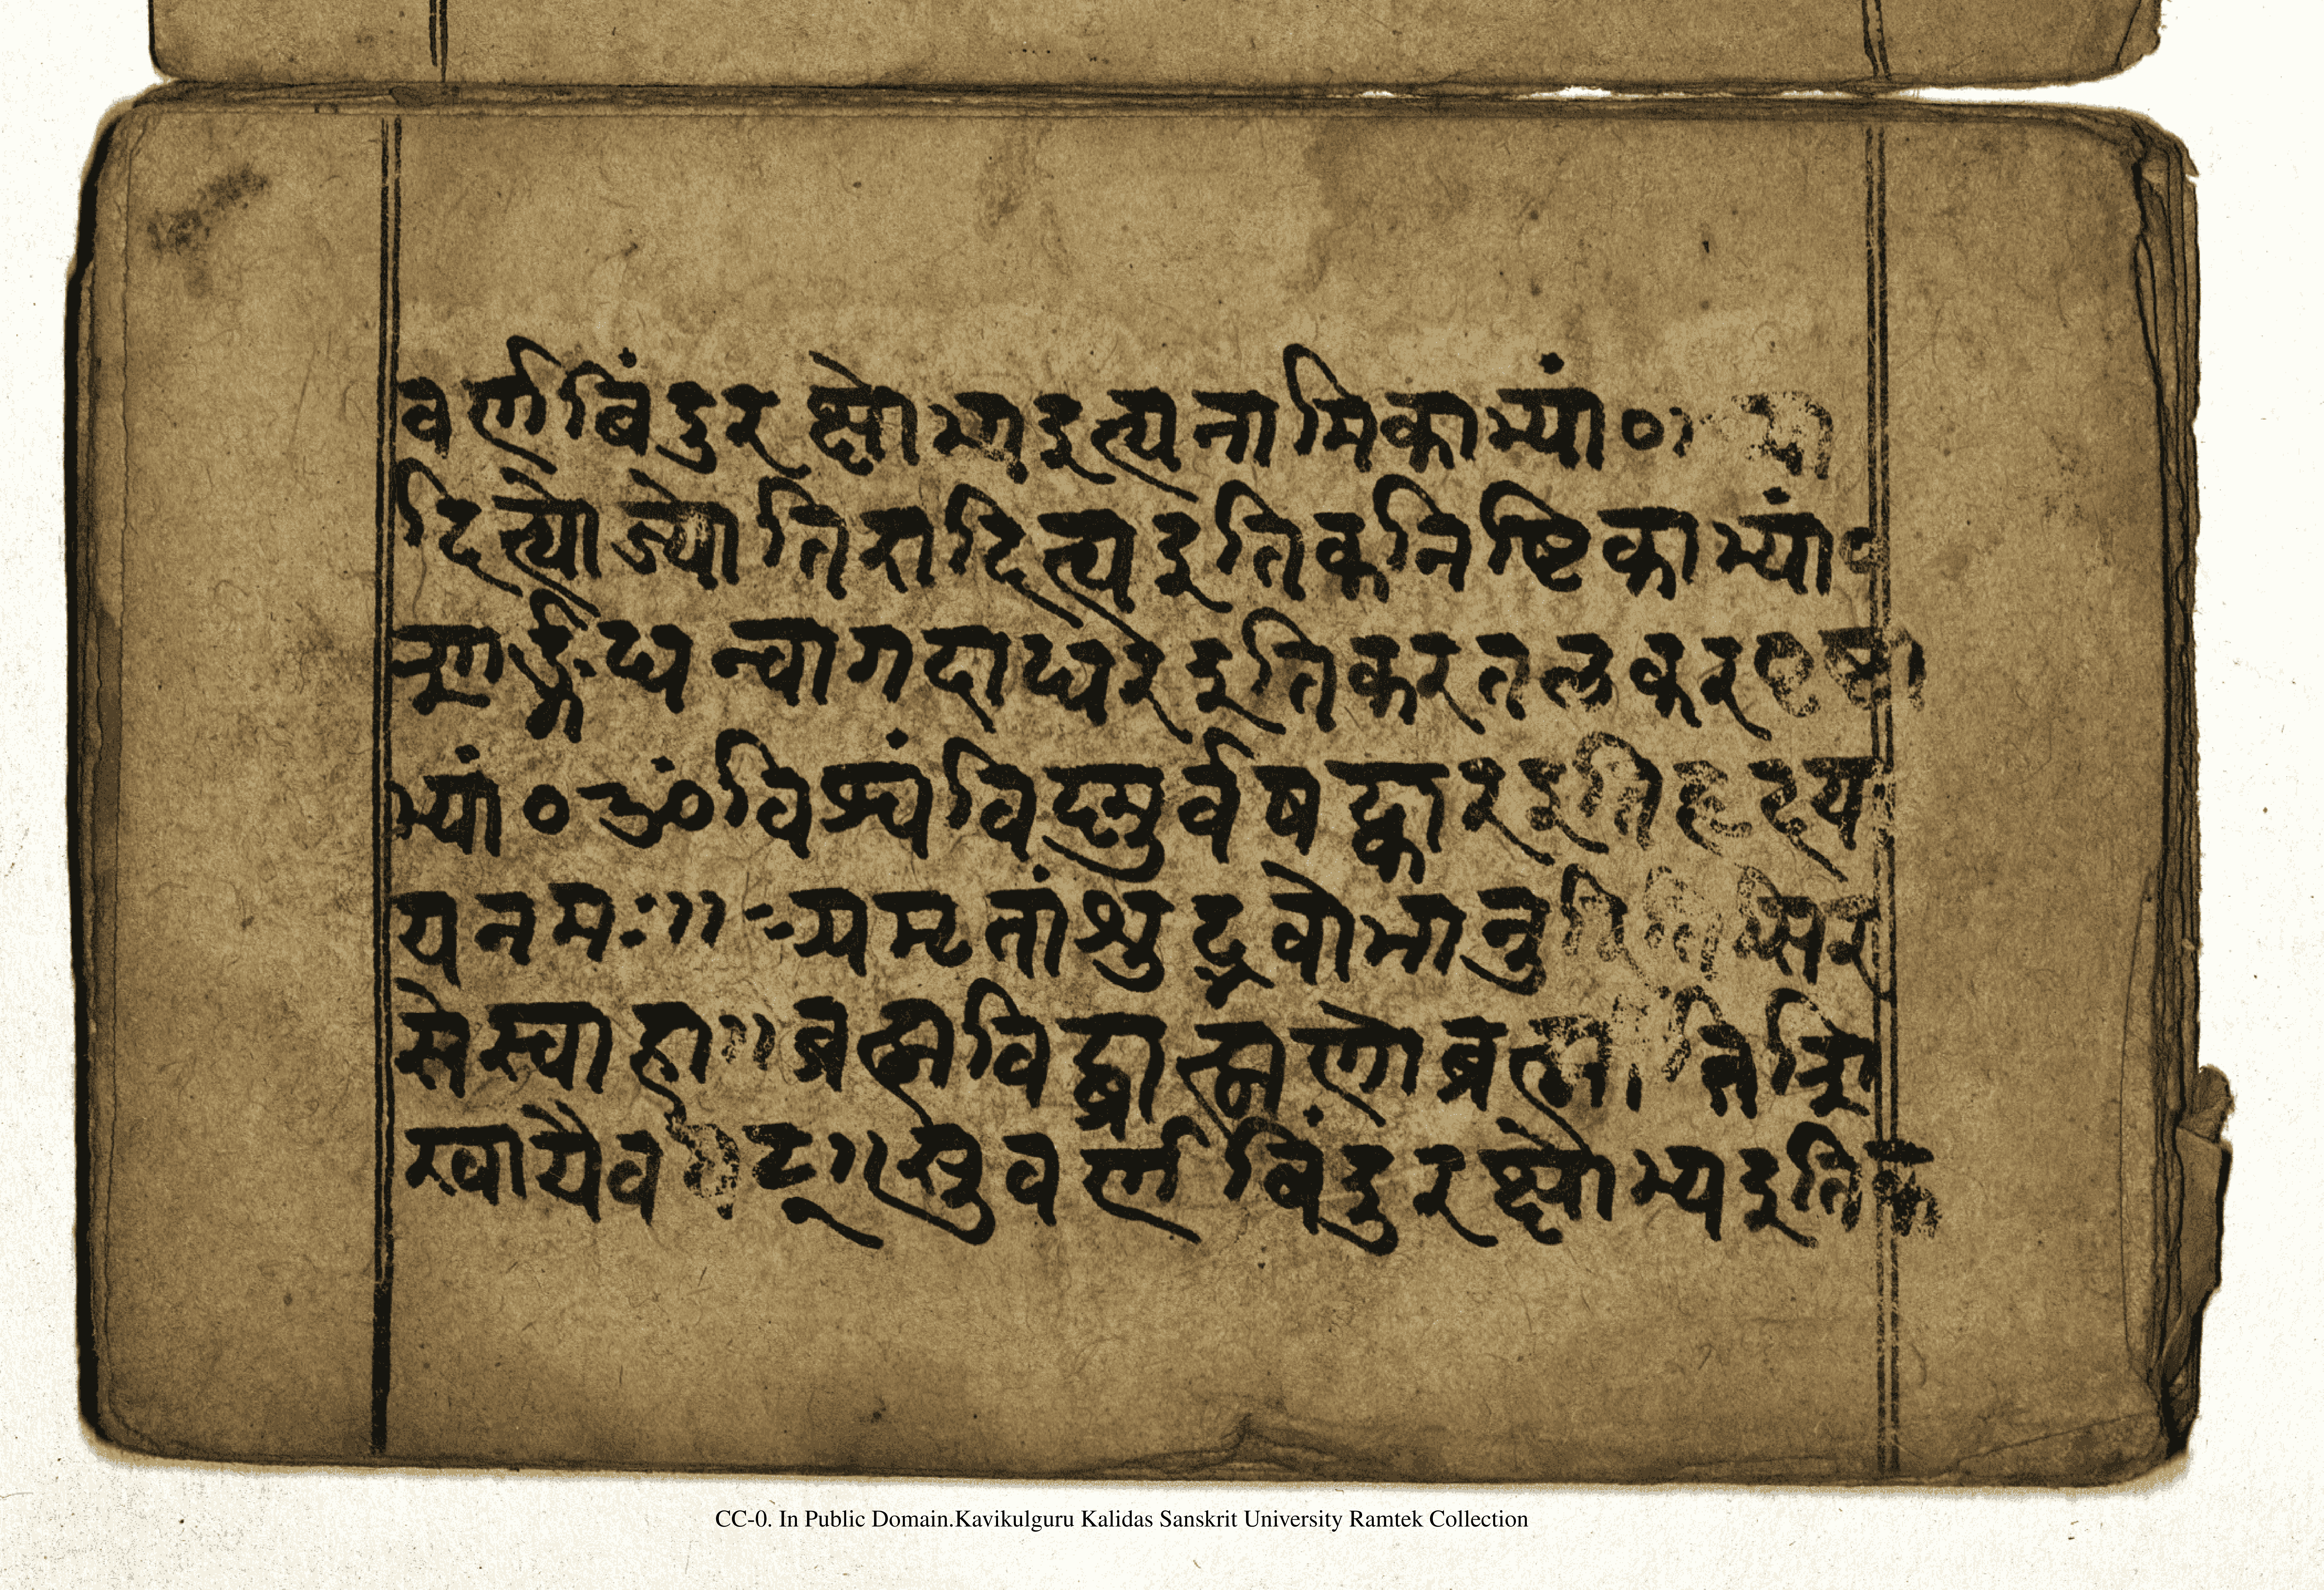 वर्णबिंदुरक्षोभ्यइत्यनामिकाभ्यां०
दित्योज्योतिरादित्यइतिकनिष्टिकाभ्यां०
त्रूणाङ्कघन्वागदाघरइतिकरतलकरपृष्टा
भ्यां०ॐविश्वंविष्मुर्वषट्कारइतिहृदय
यनमः॥ अमृतांश्रुद्रवोभानुरितिसिर
सेस्वाहा॥ब्रह्मविद्ब्राह्मणोब्रह्मीतिशि
खायैवषट्॥सुवर्णबिंदुरक्षोभ्यइतिक
CC-0. In Public Domain.Kavikulguru Kalidas Sanskrit University Ramtek Collection